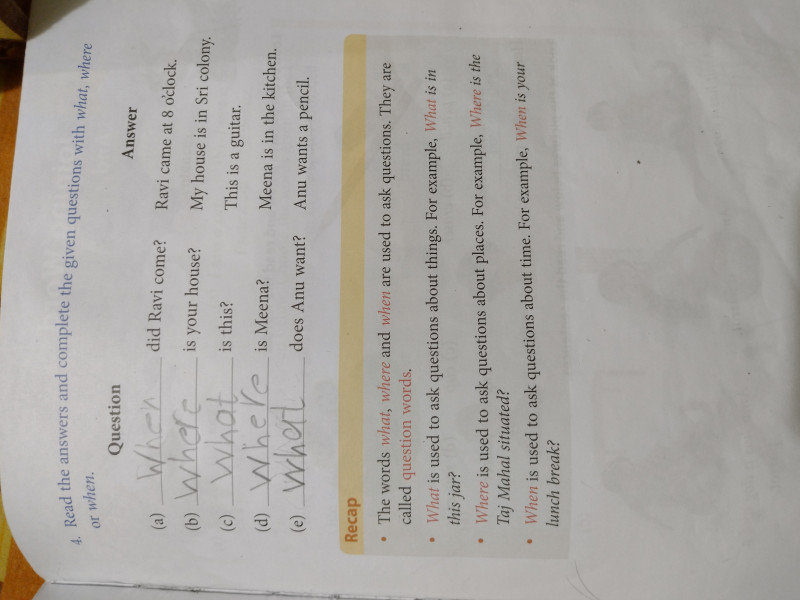 4. Read the answers and complete the given questions with what, where
or when.
Question Answer
(a) When did Ravi come? Ravi came at 8 o'clock.
(b) where is your house? My house is in Sri colony.
(c) what is this? This is a guitar.
(d) where is Meena? Meena is in the kitchen.
(e) what does Anu want? Anu wants a pencil.
Recap
• The words what, where and when are used to ask questions. They are
called question words.
• What is used to ask questions about things. For example, What is in
this jar?
• Where is used to ask questions about places. For example, Where is the
Taj Mahal situated?
• When is used to ask questions about time. For example, When is your
lunch break?